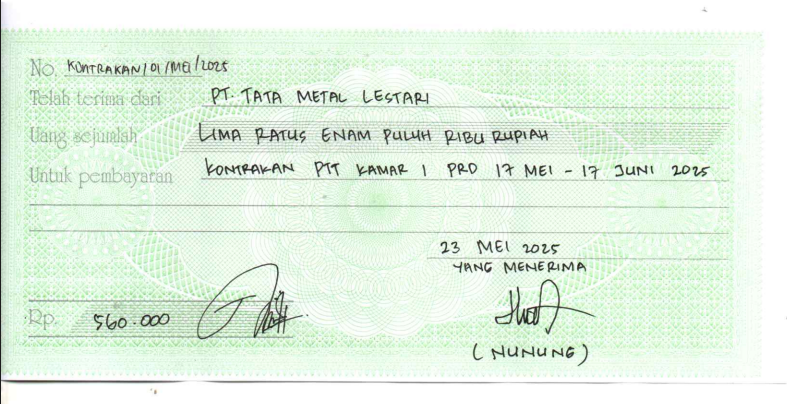 No. KONTRAKAN/01/MEI/2025
Telah terima dari PT. TATA METAL LESTARI
Uang sejumlah LIMA RATUS ENAM PULUH RIBU RUPIAH
Untuk pembayaran KONTRAKAN PTT KAMAR 1 PRD 17 MEI - 17 JUNI 2025
23 MEI 2025
YANG MENERIMA
Rp. 560.000
(NUNUNG)